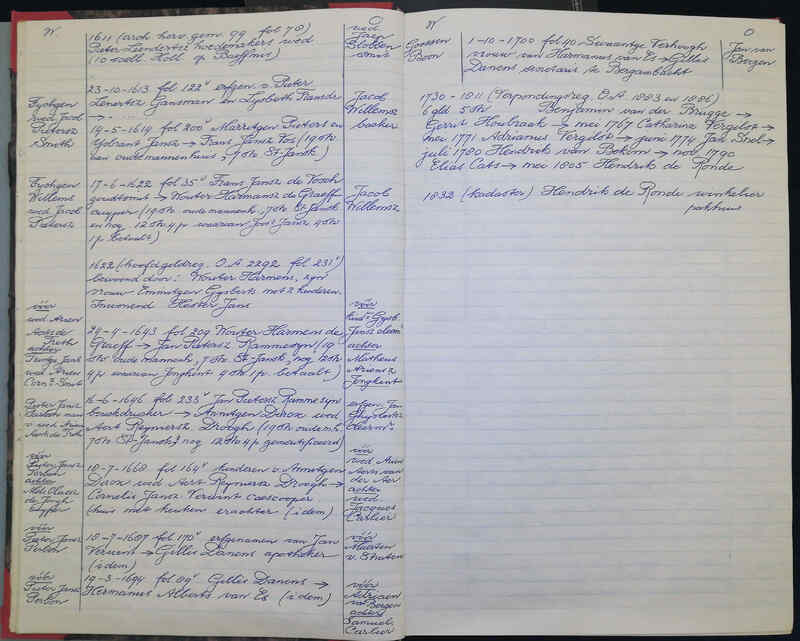 W
1611 (arch herv. gem. 99 fol 78)
Pieter Leendertsz hoedemakers wed
wed
Jan
23-10-1613 fol 122v erfgen. v. Pieter
Lenertsz Gansman en Lysbeth
→ - . . -
Jacob
Willemsz
backer
wed Jacob
Pietersz
Smith
19-5-1614 fol 200v Marritgen Pieters en
Ysbrant Jansz → Frans Jansz Vos (19 st
oude mannenhuis; 7 st St Jansk)
Willems
wed Jacob
Pietersz
17-6-1622 fol 35v Frans Jansz de Vosch
goudtsmit → Wouter Harmansz de Graeff
cuyper (19 st oude mannenh; 7 st St Jansk
en nog 12 st 4 p waarvan Joost Jansz 4 st
1 p betaelt)
Jacob
Willemsz
1622 (hoofdgeldreg. O.A. 2292 fol 231v)
bewoond door: Wouter Harmens, zyn
vrouw Emmitgen Gysberts met 2 kinderen.
Inwonend Hester Jans
vóór
wed Arien
Aerts de
achter
wed Arien
vóór
Joost cleerm.
achter
Matheus
Ariensz
Jongkint
29-4-1643 fol 209 Wouter Harmens de
Graeff → Jan Pietersz Rammezeyn (19
st oude mannenh, 7 st St Jansk, nog 12 st
4 p waervan Jongkint 4 st 1 p betaelt)
Pieter Jansz
v wed Arien
16-6-1646 fol 233v Jan Pietersz Rammezeyn
boeckdrucker → Annitgen Dircx wed
Aert Reynersz Droogh (19 st oude mh.
7 st St Jansk; nog 12 st 4 p gemortificeerd)
erfgen. Jan
Ghysbertsz
cleerm.
vóór
Pieter Jansz
achter
de Jongh
18-7-1668 fol 164v kinderen v. Annitgen
Dircx wed Aert Reyners Droogh →
Cornelis Jansz Verduint caescooper
(huis met keuken erachter (idem)
vóór
wed Arien
Aerts van
der Aer
achter
wed
Jacques
Carlier
vóór
Pieter Jansz
18-7-1687 fol 170v erfgenamen van Jan
→ Gillis Danens apotheker
(idem)
vóór
Maerten
v. Straten
vóór
Pieter Jansz
19-3-1694 fol 89v Gillis Danens →
Hermanus Alberts van Es (idem)
vóór
Adriaen
van Bergen
achter
Samuel
Carlier
W
O
Goossen
Toon
1-10-1700 fol 40 Swaantge Verhough
vrouw van Hermanus van Es → Gillis
Danens secretaris te Bergambacht
Jan van
Bergen
1730-1811 (Verpondingsreg. O.A. 1883 en 1886)
6 gld 5 st Benjamin van der Brugge →
Gerrit Houbraak → mei 1767 Catharina Vergeloz →
mei 1771 Adrianus Vergeloz → juni 1774 Jan Snel →
juli 1780 Hendrik van Bokom → nov 1790
Elias Cats → mei 1805 Hendrik de Ronde
1832 (kadaster) Hendrik de Ronde winkelier
pakhuis